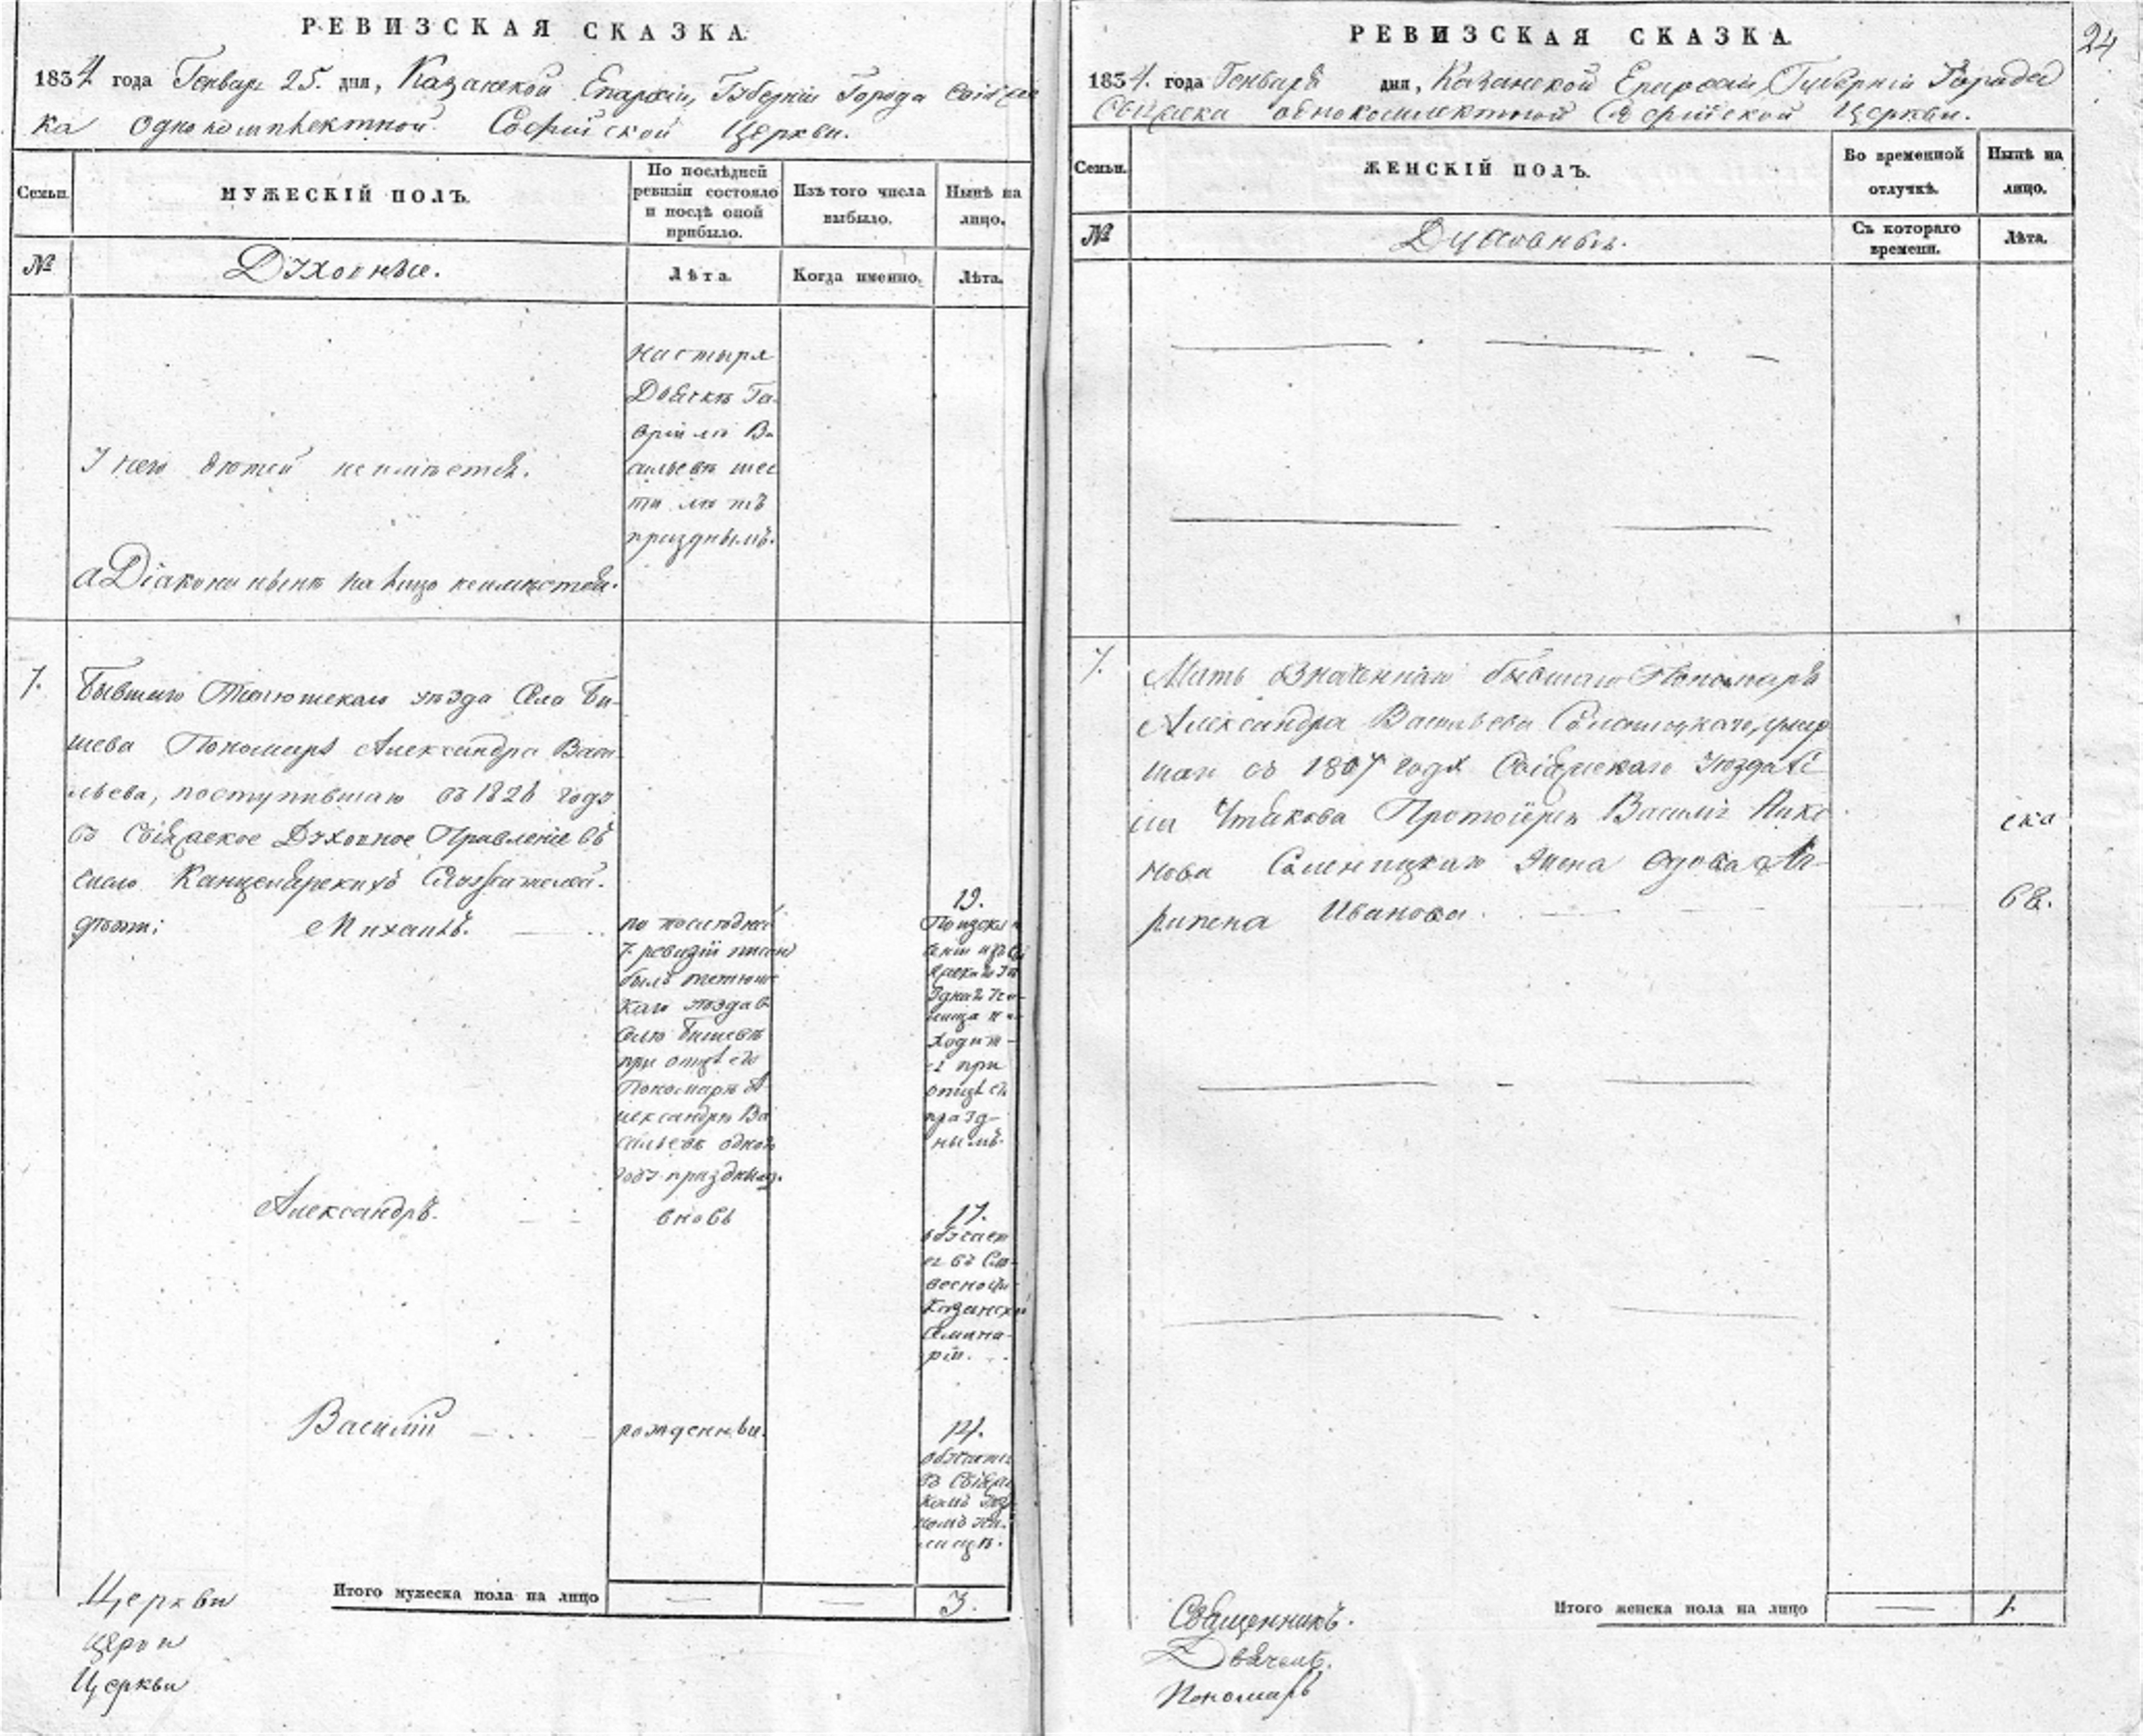 РЕВИЗСКАЯ СКАЗКА
1834 года Генваря 25. дня, Казанской Епархіи, Губерніи Города Свіяж
ка однокомплектной Софійской Церкви.
Семьи.
МУЖЕСКІЙ ПОЛЪ.
По послѣдней
ревизіи состояло
и послѣ оной
прибыло.
Изъ того числа
выбыло.
Нынѣ на
лицо.
№
Духовные.
Лѣта.
Когда именно.
Лѣта.
настыря
Гав
рійлѣ Ва
сильевѣ шес
ти лѣтъ
празднымъ.
У него дѣтей неимѣется.
а Діакона нынѣ на лицо неимѣется.
7.
Бывшаго Тетюшскаго уѣзда Села Би-
шева Пономаря Александра Васи-
льева, поступившаго въ 1826 году
въ Свіяжское Духовное Правленіе въ
число Канцелярскихъ Служителей.
дѣти: Михаилъ.
по последней
7 ревизіи писан
былъ тетюшс
каго уѣзда в
селѣ Бишевѣ
при отцѣ его
Пономарѣ А
лександрѣ Ва
сильевѣ одного
году праздным.
19.
По исклю
ченіи изъ Сві
яжскаго уѣ
зднаго Учи-
лища на-
ходит-
ся при
отцѣ
празд-
нымъ.
Александръ.
вновь
17.
обучает
ся въ Сло
весности
Казанской
Семина-
ріи.
Василій
рожденны.
14.
обучается
въ Свіяжс
комъ уѣзд
номъ учи-
лищѣ.
Итого мужеска пола на лицо
3.
Церкви
Церкви
Церкви
24
РЕВИЗСКАЯ СКАЗКА
1834. года Генваря дня, Казанской Епархіи, Губерніи Города
Свіяжска однокомплектной Софійской Церкви.
Семьи.
ЖЕНСКІЙ ПОЛЪ.
Во временной
отлучкѣ.
Нынѣ на
лицо.
№
Духовныя.
Съ котораго
времени.
Лѣта.
7.
Мать Значеннаго бывшаго Пономаря
Александра Васильева Солоницкаго, умер
шаго въ 1807 году Свіяжскаго Уѣзда Се
ла Утякова Протоіерея Василія Нико
нова Солоницкаго жена вдова Аг-
рипена Иванова.
68.
Итого женска пола на лицо
1.
Священникъ.
Дьячекъ.
Пономарь